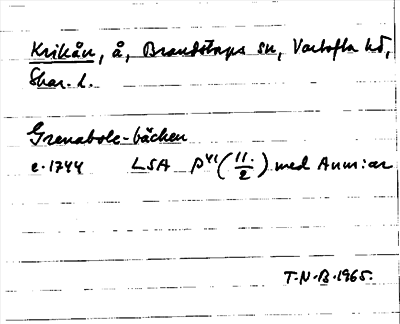 Krikån, å, Brandstorps sn, Vartofta hd,
Skar. l.
Grenabols-bäcken
c. 1744 LSA P41 (11:/2) med Anm:ar
T.N.B. 1965.